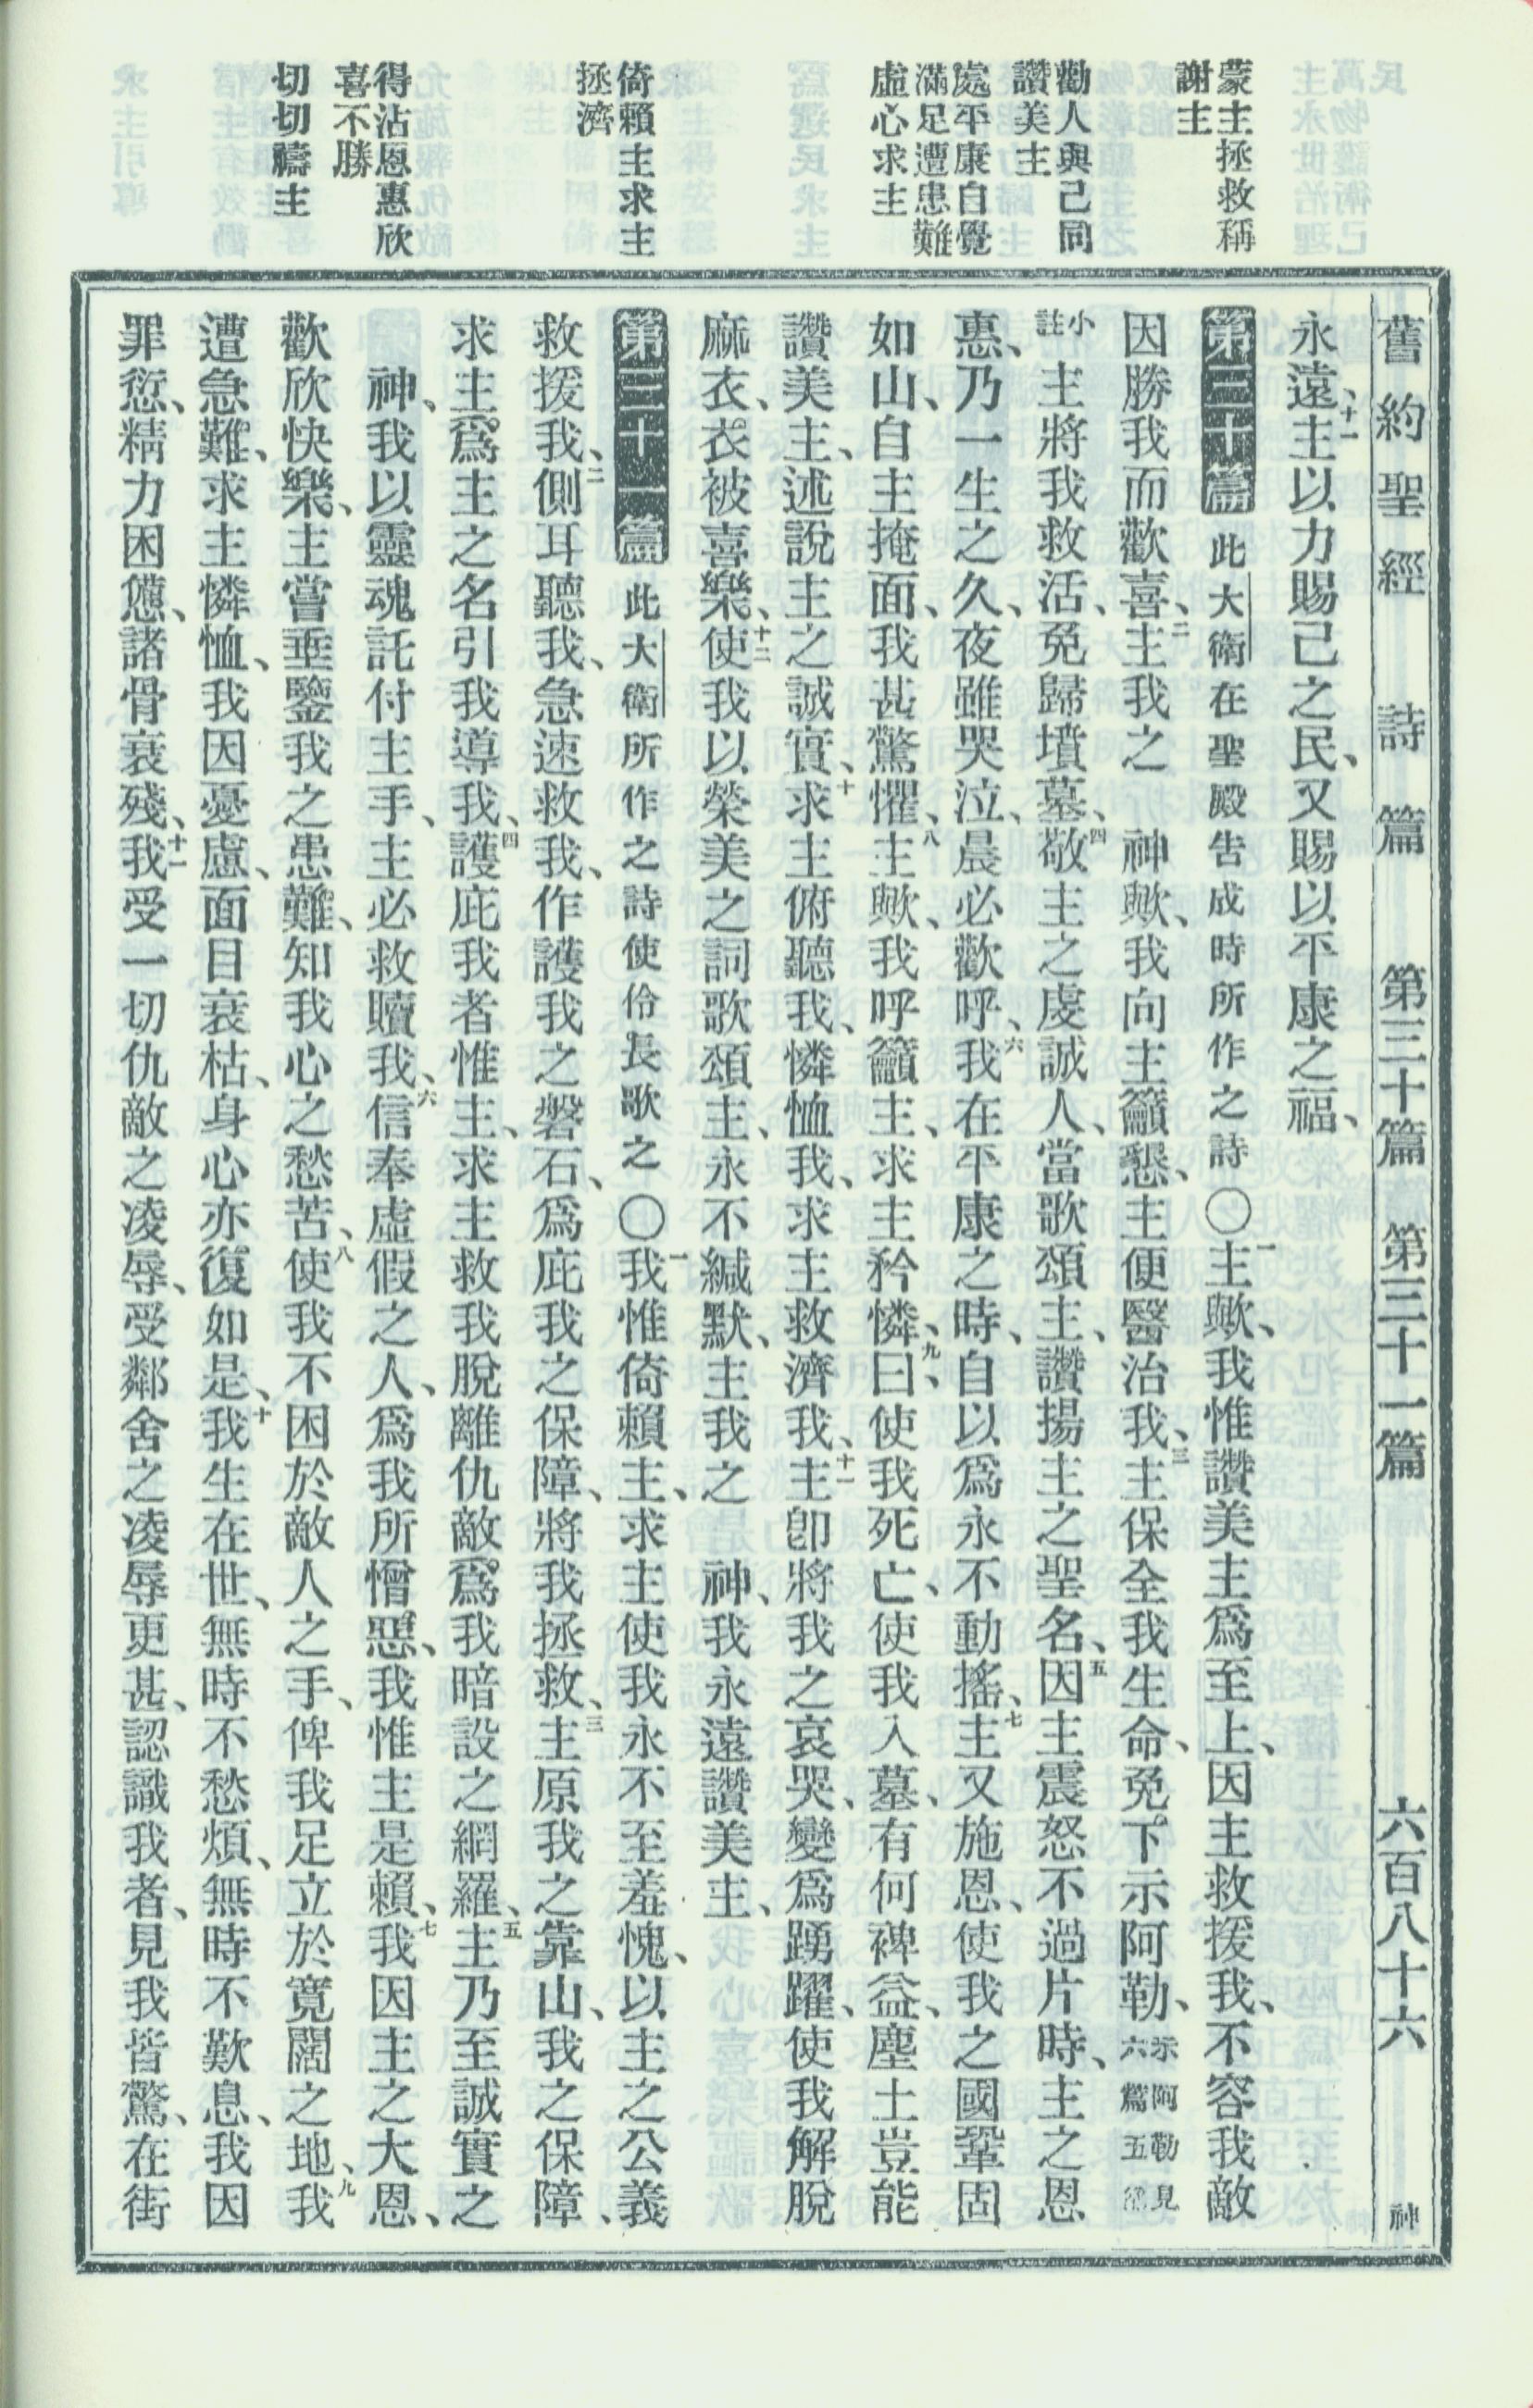 舊約聖經 詩篇 第三十篇 第三十一篇 六百八十六 神
蒙主拯救稱
謝主
勸人與己同
讚美主
處平康自覺
滿足遭患難
虛心求主
倚賴主求主
拯濟
得沾恩惠欣
喜不勝
切切禱主
永遠、十一主以力賜己之民、又賜以平康之福、
第三十篇 此大衛在聖殿告成時所作之詩〇一主歟、我惟讚美主爲至上、因主救援我、不容我敵
因勝我而歡喜、二主我之 神歟、我向主籲懇、主便醫治我、三主保全我生命、免下示阿勒、示阿勒見六篇五節
小註 主將我救活、免歸墳墓、四敬主之虔誠人、當歌頌主、讚揚主之聖名、五因主震怒不過片時、主之恩
惠、乃一生之久、夜雖哭泣、晨必歡呼、六我在平康之時、自以爲永不動搖、七主又施恩、使我之國鞏固
如山、自主掩面、我甚驚懼、八主歟、我呼籲主、求主矜憐、九曰、使我死亡、使我入墓、有何裨益、塵土豈能
讚美主、述說主之誠實、十求主俯聽我、憐恤我、求主救濟我、十一主卽將我之哀哭、變爲踴躍、使我解脫
麻衣、衣被喜樂、十二使我以榮美之詞歌頌主、永不緘默、主我之 神、我永遠讚美主、
第三十一篇 此大衛所作之詩使伶長歌之〇一我惟倚賴主、求主使我永不至羞愧、以主之公義
救援我、二側耳聽我、急速救我、作護我之磐石、爲庇我之保障、將我拯救、三主原我之靠山、我之保障、
求主爲主之名引我導我、四護庇我者惟主、求主救我脫離仇敵爲我暗設之網羅、五主乃至誠實之
神、我以靈魂託付主手、主必救贖我、六信奉虛假之人、爲我所憎惡、我惟主是賴、七我因主之大恩、
歡欣快樂、主嘗垂鑒我之患難、知我心之愁苦、八使我不困於敵人之手、俾我足立於寬闊之地、九我
遭急難、求主憐恤、我因憂慮、面目衰枯、身心亦復如是、十我生在世、無時不愁煩、無時不歎息、我因
罪愆、精力困憊、諸骨衰殘、十一我受一切仇敵之凌辱、受鄰舍之凌辱更甚、認識我者、見我皆驚、在街